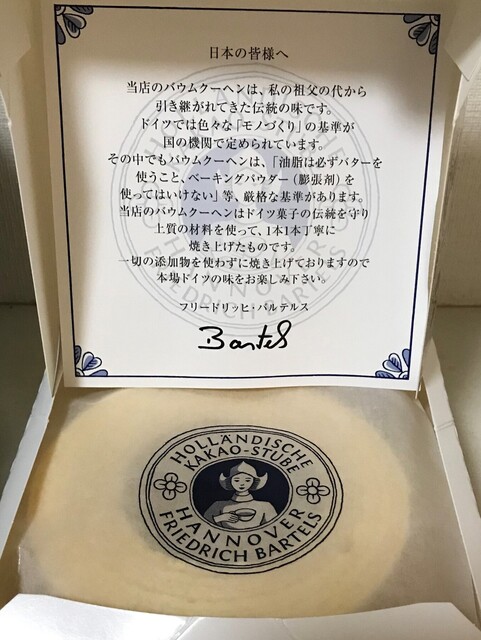 日本の皆様へ
当店のバウムクーヘンは、私の祖父の代から
引き継がれてきた伝統の味です。
ドイツでは色々な「モノづくり」の基準が
国の機関で定められています。
その中でもバウムクーヘンは、「油脂は必ずバターを
使うこと、ベーキングパウダー（膨張剤）を
使ってはいけない」等、厳格な基準があります。
当店のバウムクーヘンはドイツ菓子の伝統を守り
上質の材料を使って、1本1本丁寧に
焼き上げたものです。
一切の添加物を使わずに焼き上げておりますので
本場ドイツの味をお楽しみ下さい。
フリードリッヒ・バルテルス
Bartels
HOLLÄNDISCHE
KAKAO-STUBE
HANNOVER
FRIEDRICH BARTELS